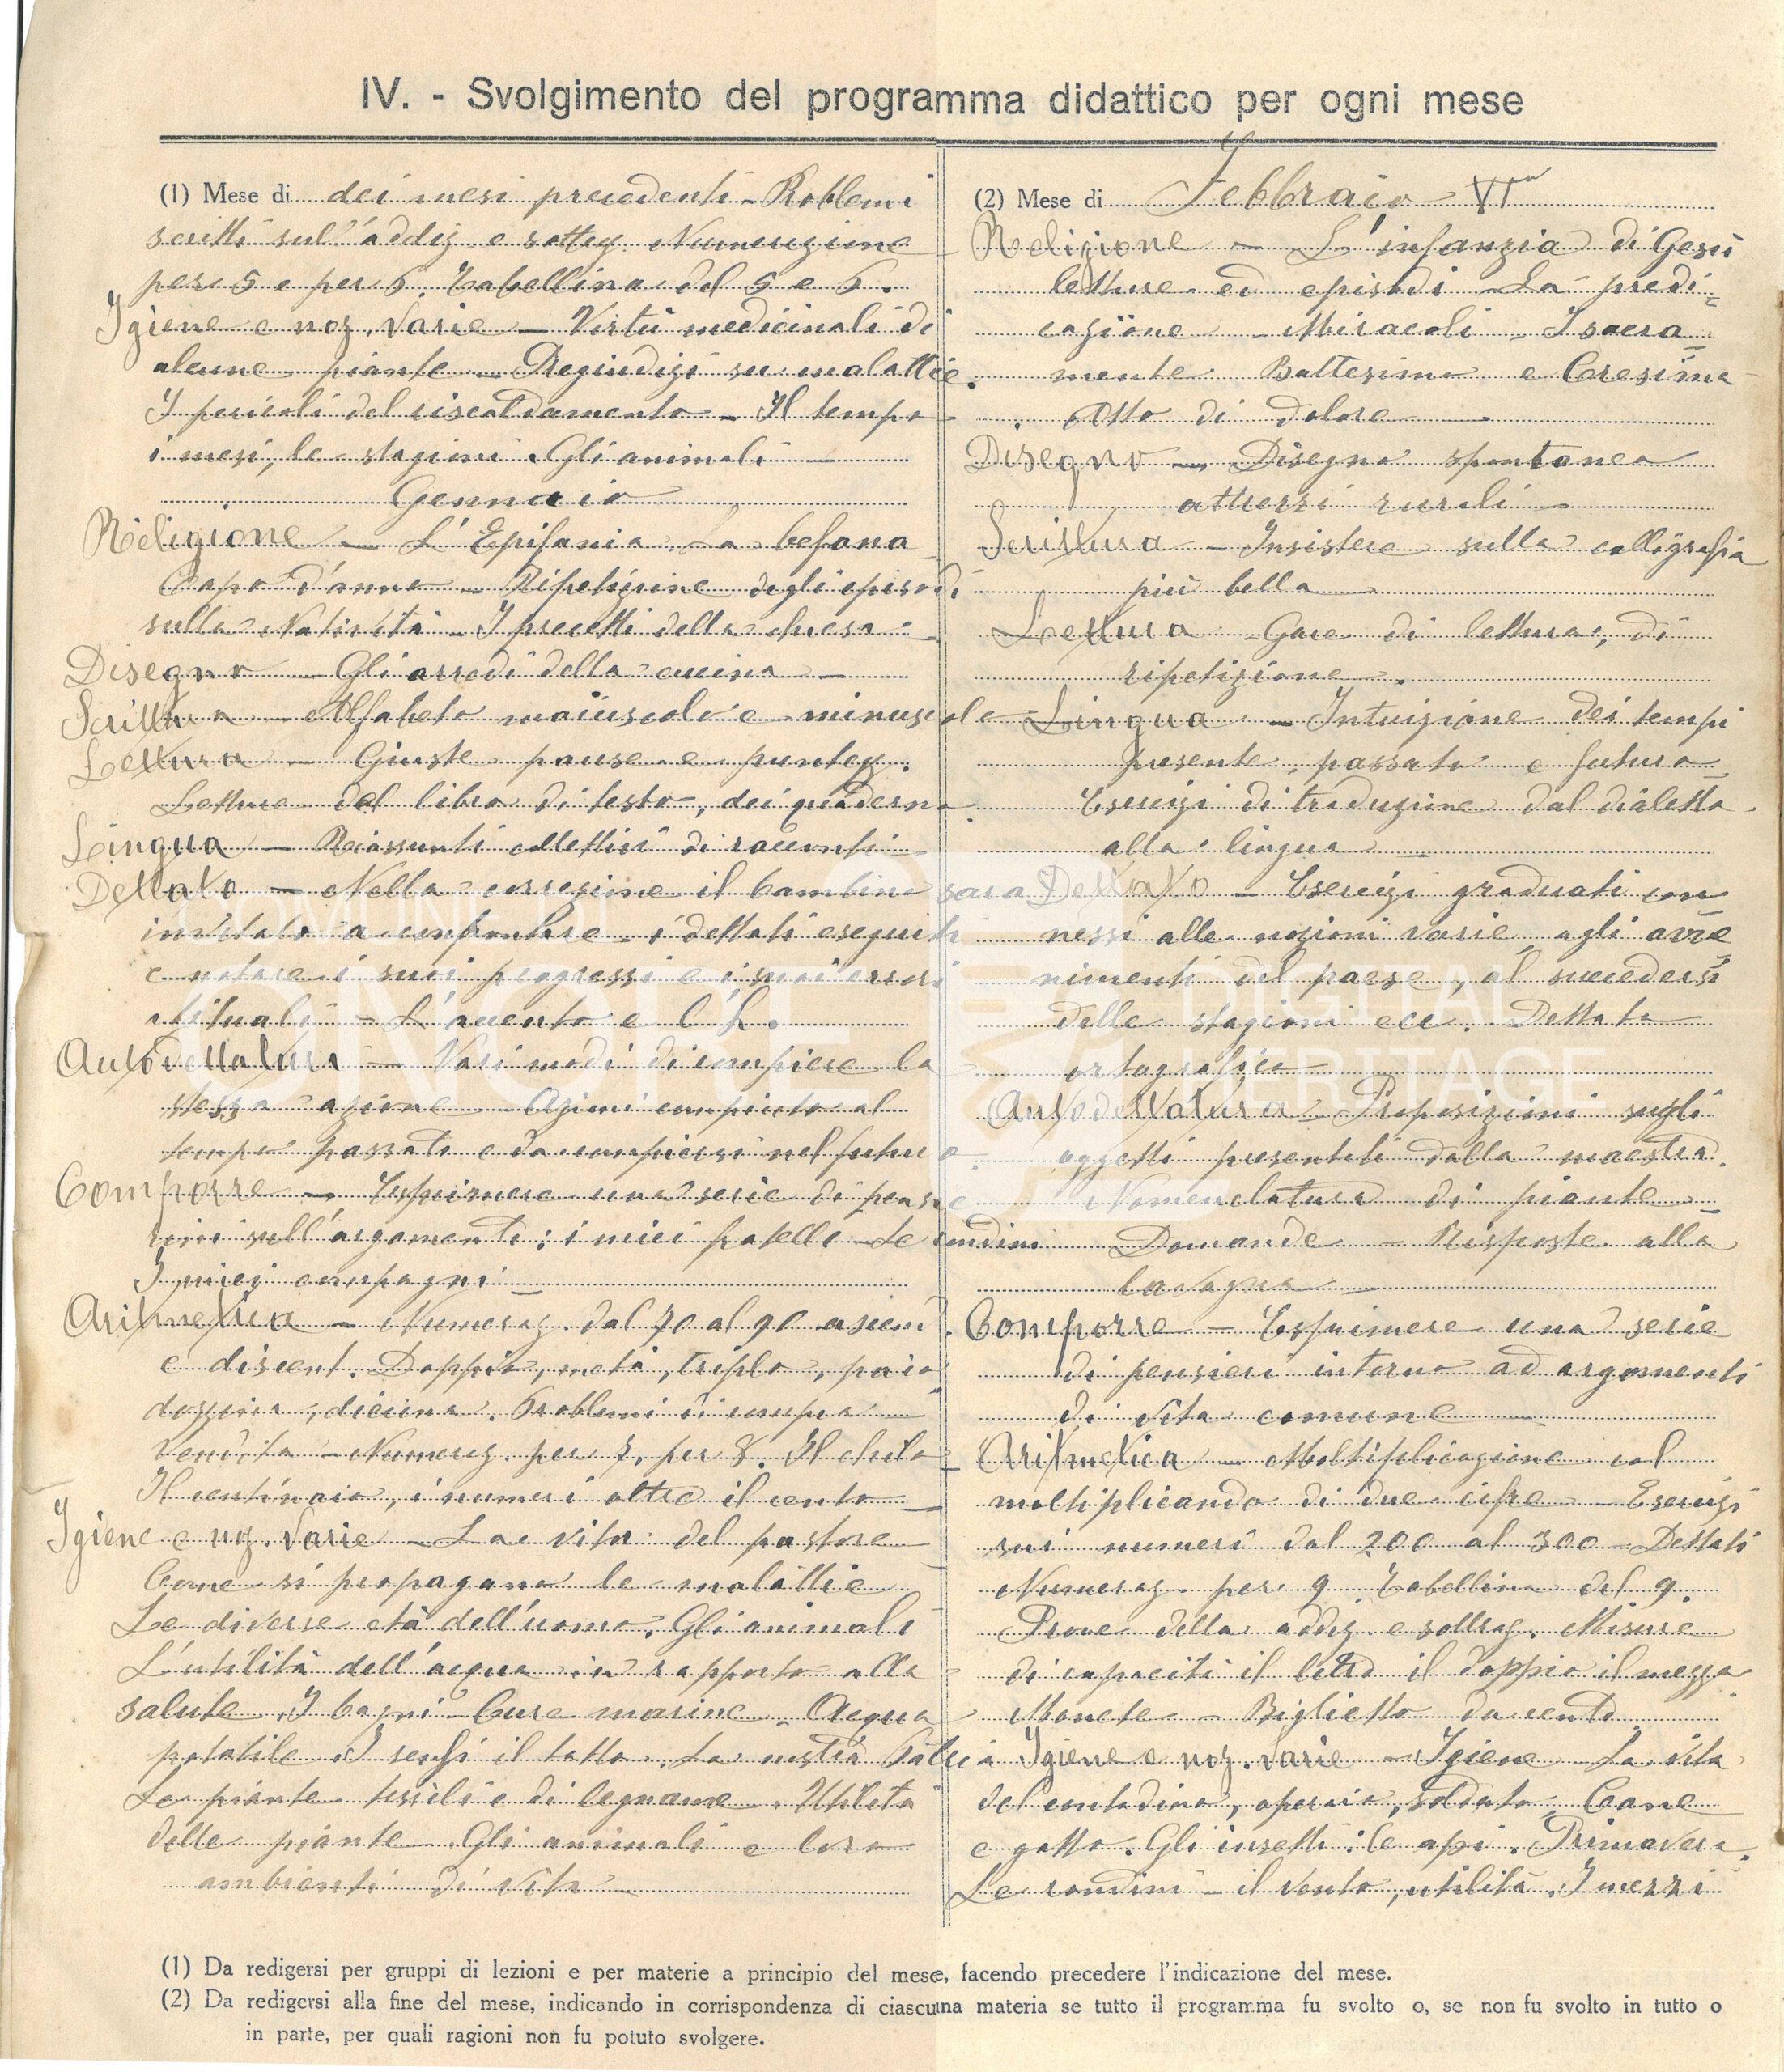 IV. - Svolgimento del programma didattico per ogni mese
(1) Mese di dei mesi precedenti - Problemi
scritti sull'addiz e sottrz. Numerazione
per 5 e per 6. Tabellina del 5 e 6.
Igiene e noz. Varie - Virtù medicinali di
alcune piante - Pregiudizi su malattie.
I pericoli del riscaldamento - Il tempo
i mesi, le stagioni. Gli animali -
Gennaio
Religione - L'Epifania. La befana
Capo d'anno - Ripetizione degli episodi
sulla Natività - I precetti della chiesa -
Disegno - Gli arredi della cucina -
Scrittura - Alfabeto maiuscolo e minuscolo
Lettura - Giuste pause e punteg.
Letture del libro di testo, dei quaderno.
Lingua - Riassunti collettivi di racconti
Dettato - Nella correzione il bambino sarà
invitato a confrontare i dettati eseguiti
e notare i suoi progressi e i suoi errori
abituali - L'accento e l'h.
Autodettatura - Vari modi di compiere la
stessa azione - Azioni compiute al
tempo passato e da compiersi nel futuro.
Comporre - Esprimere una serie di pensie
rini sull'argomento: i miei fratelli - Le rondini
I miei compagni -
Aritmetica - Numeraz. dal 70 al 90 ascend.
e discent. Doppio, metà, triplo, paio
dozzina, diecina. Problemi di compra
vendita - Numeraz. per 7, per 8. Il chilo
Il centinaio, i numeri oltre il cento -
Igiene e noz. Varie - La vita del pastore
Come si propagano le malattie
Le diverse età dell'uomo. Gli animali
L'utilità dell'acqua in rapporto alla
salute. I bagni - Cure marine - Acqua
potabile. I sensi il tatto. La nostra Patria
Le piante tessili e di legname. Utilità
delle piante. Gli animali e loro
ambienti di vita -
(2) Mese di Febbraio VI
Religione - L'infanzia di Gesù
letture ed episodi - La predi-
cazione - Miracoli - I sacra-
mente Battesimo e Cresima
. Atto di dolore -
Disegno - Disegno spontaneo
attrezzi rurali -
Scrittura - Insistere sulla calligrafia
più bella -
Lettura - Gare di lettura, di
ripetizione.
Lingua - Intuizione dei tempi
presente, passato e futuro
Esercizi di traduzione dal dialetto
alla lingua -
Dettato - Esercizi graduati con
nessi alle nozioni varie, agli avve
nimenti del paese, al succedersi
delle stagioni ecc. Dettato
ortografico
Autodettatura - Proposizioni sugli
oggetti presentati dalla maestra.
Nomenclatura di piante -
Domande - Risposte alla
lavagna -
Comporre - Esprimere una serie
di pensieri intorno ad argomenti
di vita comune -
Aritmetica - Moltiplicazione col
moltiplicando di due cifre - Esercizi
sui numeri dal 200 al 300 - Dettati
Numeraz. per 9. Tabellina del 9.
Prove della addiz. e sottraz. Misure
di capacità il litro il doppio il mezzo
Monete - Biglietto da cento
Igiene e noz. Varie - Igiene - La vita
del contadino, operaio, soldato. Cane
e gatto. Gli insetti: le api. Primavera.
Le rondini - il vento, utilità. I mezzi
(1) Da redigersi per gruppi di lezioni e per materie a principio del mese, facendo precedere l'indicazione del mese.
(2) Da redigersi alla fine del mese, indicando in corrispondenza di ciascuna materia se tutto il programma fu svolto o, se non fu svolto in tutto o
in parte, per quali ragioni non fu potuto svolgere.